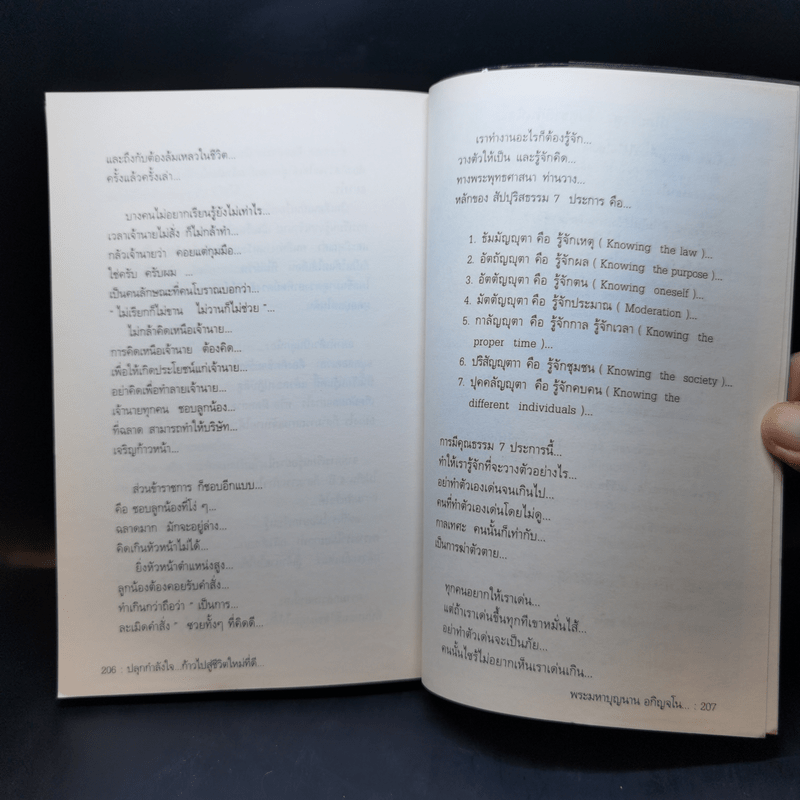 และถึงกับต้องล้มเหลวในชีวิต...
ครั้งแล้วครั้งเล่า...
บางคนไม่อยากเรียนรู้ยังไม่เท่าไร...
เวลาเจ้านายไม่สั่ง ก็ไม่กล้าทำ...
กลัวเจ้านายว่า คอยแต่กุมมือ...
ใช่ครับ ครับผม ...
เป็นคนลักษณะที่คนโบราณบอกว่า...
" ไม่เรียกก็ไม่ขาน ไม่วานก็ไม่ช่วย "...
ไม่กล้าคิดเหนือเจ้านาย...
การคิดเหนือเจ้านาย ต้องคิด...
เพื่อให้เกิดประโยชน์แก่เจ้านาย...
อย่าคิดเพื่อทำลายเจ้านาย...
เจ้านายทุกคน ชอบลูกน้อง...
ที่ฉลาด สามารถทำให้บริษัท...
เจริญก้าวหน้า...
ส่วนข้าราชการ ก็ชอบอีกแบบ...
คือ ชอบลูกน้องที่โง่ ๆ...
ฉลาดมาก มักจะอยู่ล่าง...
คิดเกินหัวหน้าไม่ได้...
ยิ่งหัวหน้าตำแหน่งสูง...
ลูกน้องต้องคอยรับคำสั่ง...
ทำเกินกว่าถือว่า " เป็นการ...
ละเมิดคำสั่ง " ซวยทั้งๆ ที่คิดดี...
206 : ปลุกกำลังใจ...ก้าวไปสู่ชีวิตใหม่ที่ดี...
เราทำงานอะไรก็ต้องรู้จัก...
วางตัวให้เป็น และรู้จักคิด...
ทางพระพุทธศาสนา ท่านวาง...
หลักของ สัปปุริสธรรม 7 ประการ คือ...
1. ธัมมัญญุตา คือ รู้จักเหตุ ( Knowing the law )...
2. อัตถัญญุตา คือ รู้จักผล ( Knowing the purpose )...
3. อัตตัญญุตา คือ รู้จักตน ( Knowing oneself )...
4. มัตตัญญุตา คือ รู้จักประมาณ ( Moderation )...
5. กาลัญญุตา คือ รู้จักกาล รู้จักเวลา ( Knowing the
proper time )...
6. ปริสัญญุตาา คือ รู้จักชุมชน ( Knowing the society )...
7. ปุคคลัญญุตา คือ รู้จักคบคน ( Knowing the
different individuals )...
การมีคุณธรรม 7 ประการนี้...
ทำให้เรารู้จักที่จะวางตัวอย่างไร...
อย่าทำตัวเองเด่นจนเกินไป...
คนที่ทำตัวเองเด่นโดยไม่ดู...
กาลเทศะ คนนั้นก็เท่ากับ...
เป็นการฆ่าตัวตาย...
ทุกคนอยากให้เราเด่น...
แต่ถ้าเราเด่นขึ้นทุกทีเขาหมั่นไส้...
อย่าทำตัวเด่นจะเป็นภัย...
คนนั้นไซร้ไม่อยากเห็นเราเด่นเกิน...
พระมหาบุญนาน อกิญจโน... : 207